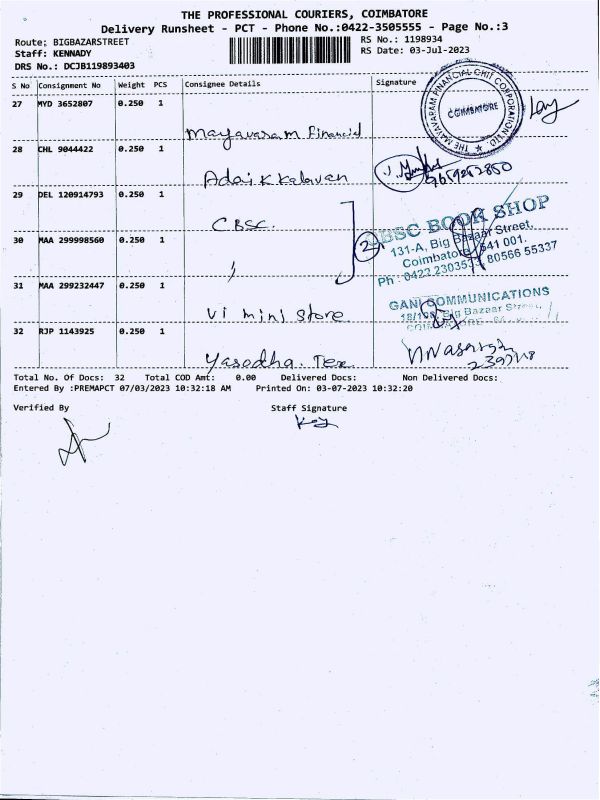 THE PROFESSIONAL COURIERS, COIMBATORE
Delivery Runsheet - PCT - Phone No.:0422-3505555 - Page No.:3
Route: BIGBAZARSTREET
RS No.: 1198934
Staff: KENNADY
RS Date: 03-Jul-2023
DRS No.: DCJB119893403
S No Consignment No Weight PCS Consignee Details Signature
27 MYD 3652807 0.250 1
Mayavaram Financial
THE MAYAVARAM FINANCIAL CHIT CORPORATION LTD.
COIMBATORE
28 CHL 9044422 0.250 1
Adaikkalavan
29 DEL 120914793 0.250 1
CBSC.
2
CBSC BOOK SHOP
131-A, Big Bazaar Street,
Coimbatore 641 001.
Ph : 0422 2303533, 80566 55337
30 MAA 299998560 0.250 1
"
31 MAA 299232447 0.250 1
Vi mini store
GANI COMMUNICATIONS
Big Bazaar Street,
COIMBATORE
32 RJP 1143925 0.250 1
Yasodha. Tex.
Total No. Of Docs: 32 Total COD Amt: 0.00 Delivered Docs: Non Delivered Docs:
Entered By :PREMAPCT 07/03/2023 10:32:18 AM Printed On: 03-07-2023 10:32:20
Verified By Staff Signature